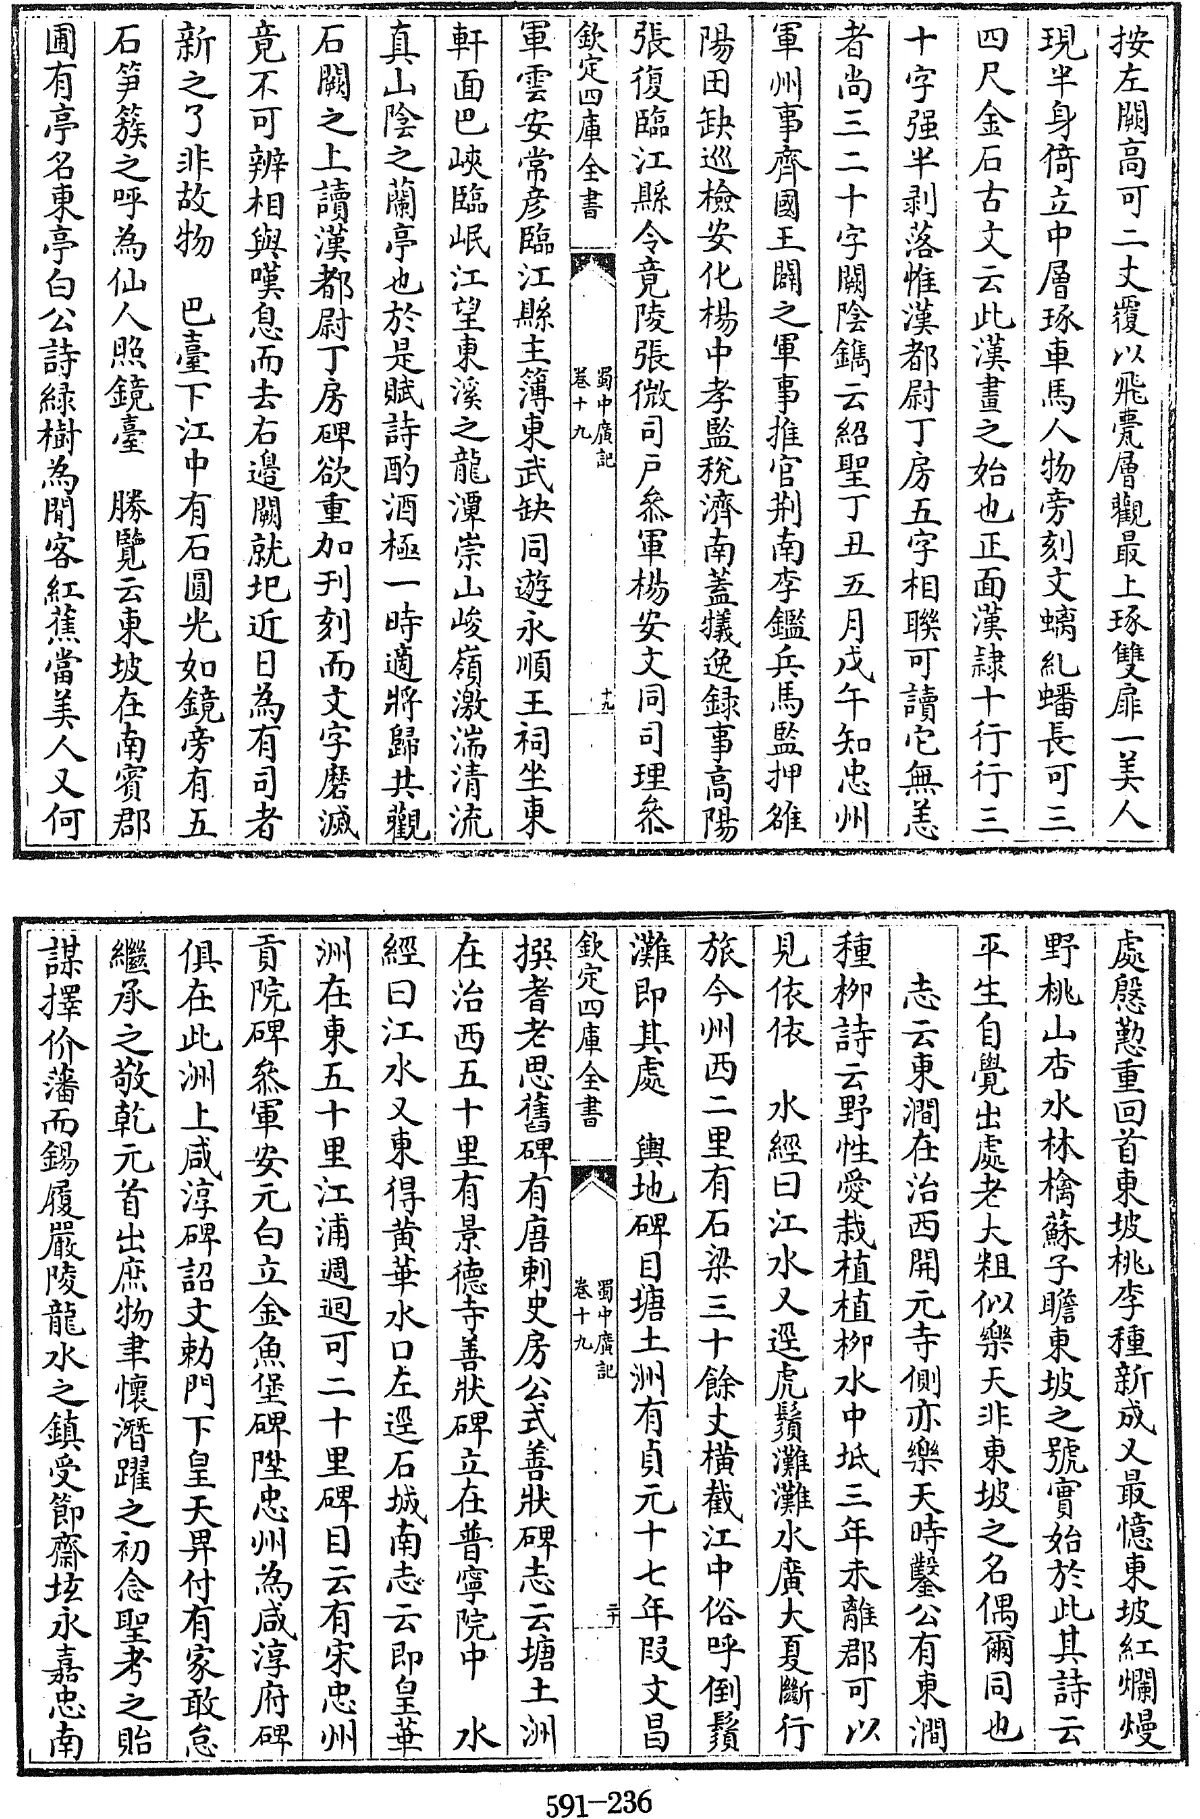 按左闕高可二丈覆以飛甍層觀最上琢雙扉一美人
現半身倚立中層琢車馬人物旁刻文螭虬蟠長可三
四尺金石古文云此漢畫之始也正面漢隷十行行三
十字强半剥落惟漢都尉丁房五字相聯可讀它無恙
者尚三二十字闕陰鐫云紹聖丁丑五月戊午知忠州
軍州事齊國王闢之軍事推官荆南李鑑兵馬監押雒
陽田缺巡檢安化楊中孝監稅濟南蓋犧逸録事高陽
張復臨江縣令竟陵張微司戶叅軍楊安文同司理叅
欽定四庫全書
蜀中廣記
卷十九
十九
軍雲安常彦臨江縣主簿東武缺同遊永順王祠坐東
軒面巴峽臨岷江望東溪之龍潭崇山峻嶺激湍清流
真山陰之蘭亭也於是賦詩酌酒極一時適將歸共觀
石闕之上讀漢都尉丁房碑欲重加刊刻而文字磨滅
竟不可辨相與嘆息而去右邉闕就圯近日為有司者
新之了非故物　巴臺下江中有石圓光如鏡旁有五
石笋簇之呼為仙人照鏡臺　勝覽云東坡在南賓郡
圃有亭名東亭白公詩緑樹為閒客紅蕉當美人又何
處慇懃重回首東坡桃李種新成又最憶東坡紅爛熳
野桃山杏水林檎蘇子瞻東坡之號實始於此其詩云
平生自覺出處老大粗似樂天非東坡之名偶爾同也
志云東澗在治西開元寺側亦樂天時鑿公有東澗
種柳詩云野性愛栽植植柳水中坻三年未離郡可以
見依依　水經曰江水又逕虎鬚灘灘水廣大夏斷行
旅今州西二里有石梁三十餘丈橫截江中俗呼倒鬚
灘即其處　輿地碑目塘土洲有貞元十七年叚文昌
欽定四庫全書
蜀中廣記
卷十九
二十
撰耆老思舊碑有唐刺史房公式善狀碑志云塘土洲
在治西五十里有景德寺善狀碑立在普寧院中　水
經曰江水又東得黄華水口左逕石城南志云即皇華
洲在東五十里江浦週迴可二十里碑目云有宋忠州
貢院碑叅軍安元白立金魚堡碑陞忠州為咸淳府碑
俱在此洲上咸淳碑詔文勅門下皇天畀付有家敢怠
繼承之敬乾元首出庶物聿懷潛躍之初念聖考之貽
謀擇价藩而錫履嚴陵龍水之鎮受節齋垓永嘉忠南
591-236